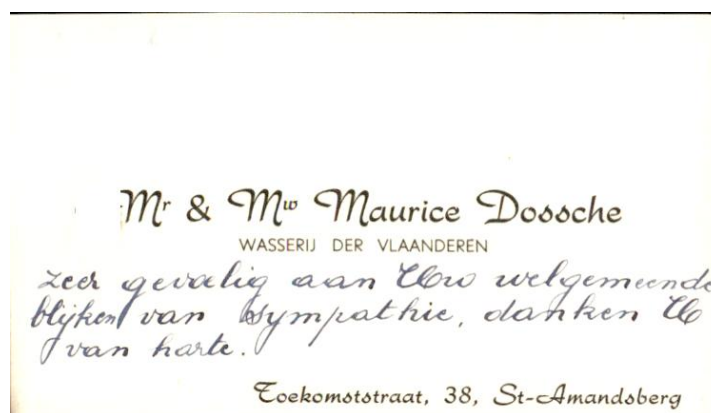 Mr & Mw Maurice Dossche
WASSERIJ DER VLAANDEREN
zeer gevoelig aan Uw welgemeende
blijken van sympathie, danken U
van harte.
Toekomststraat, 38, St-Amandsberg